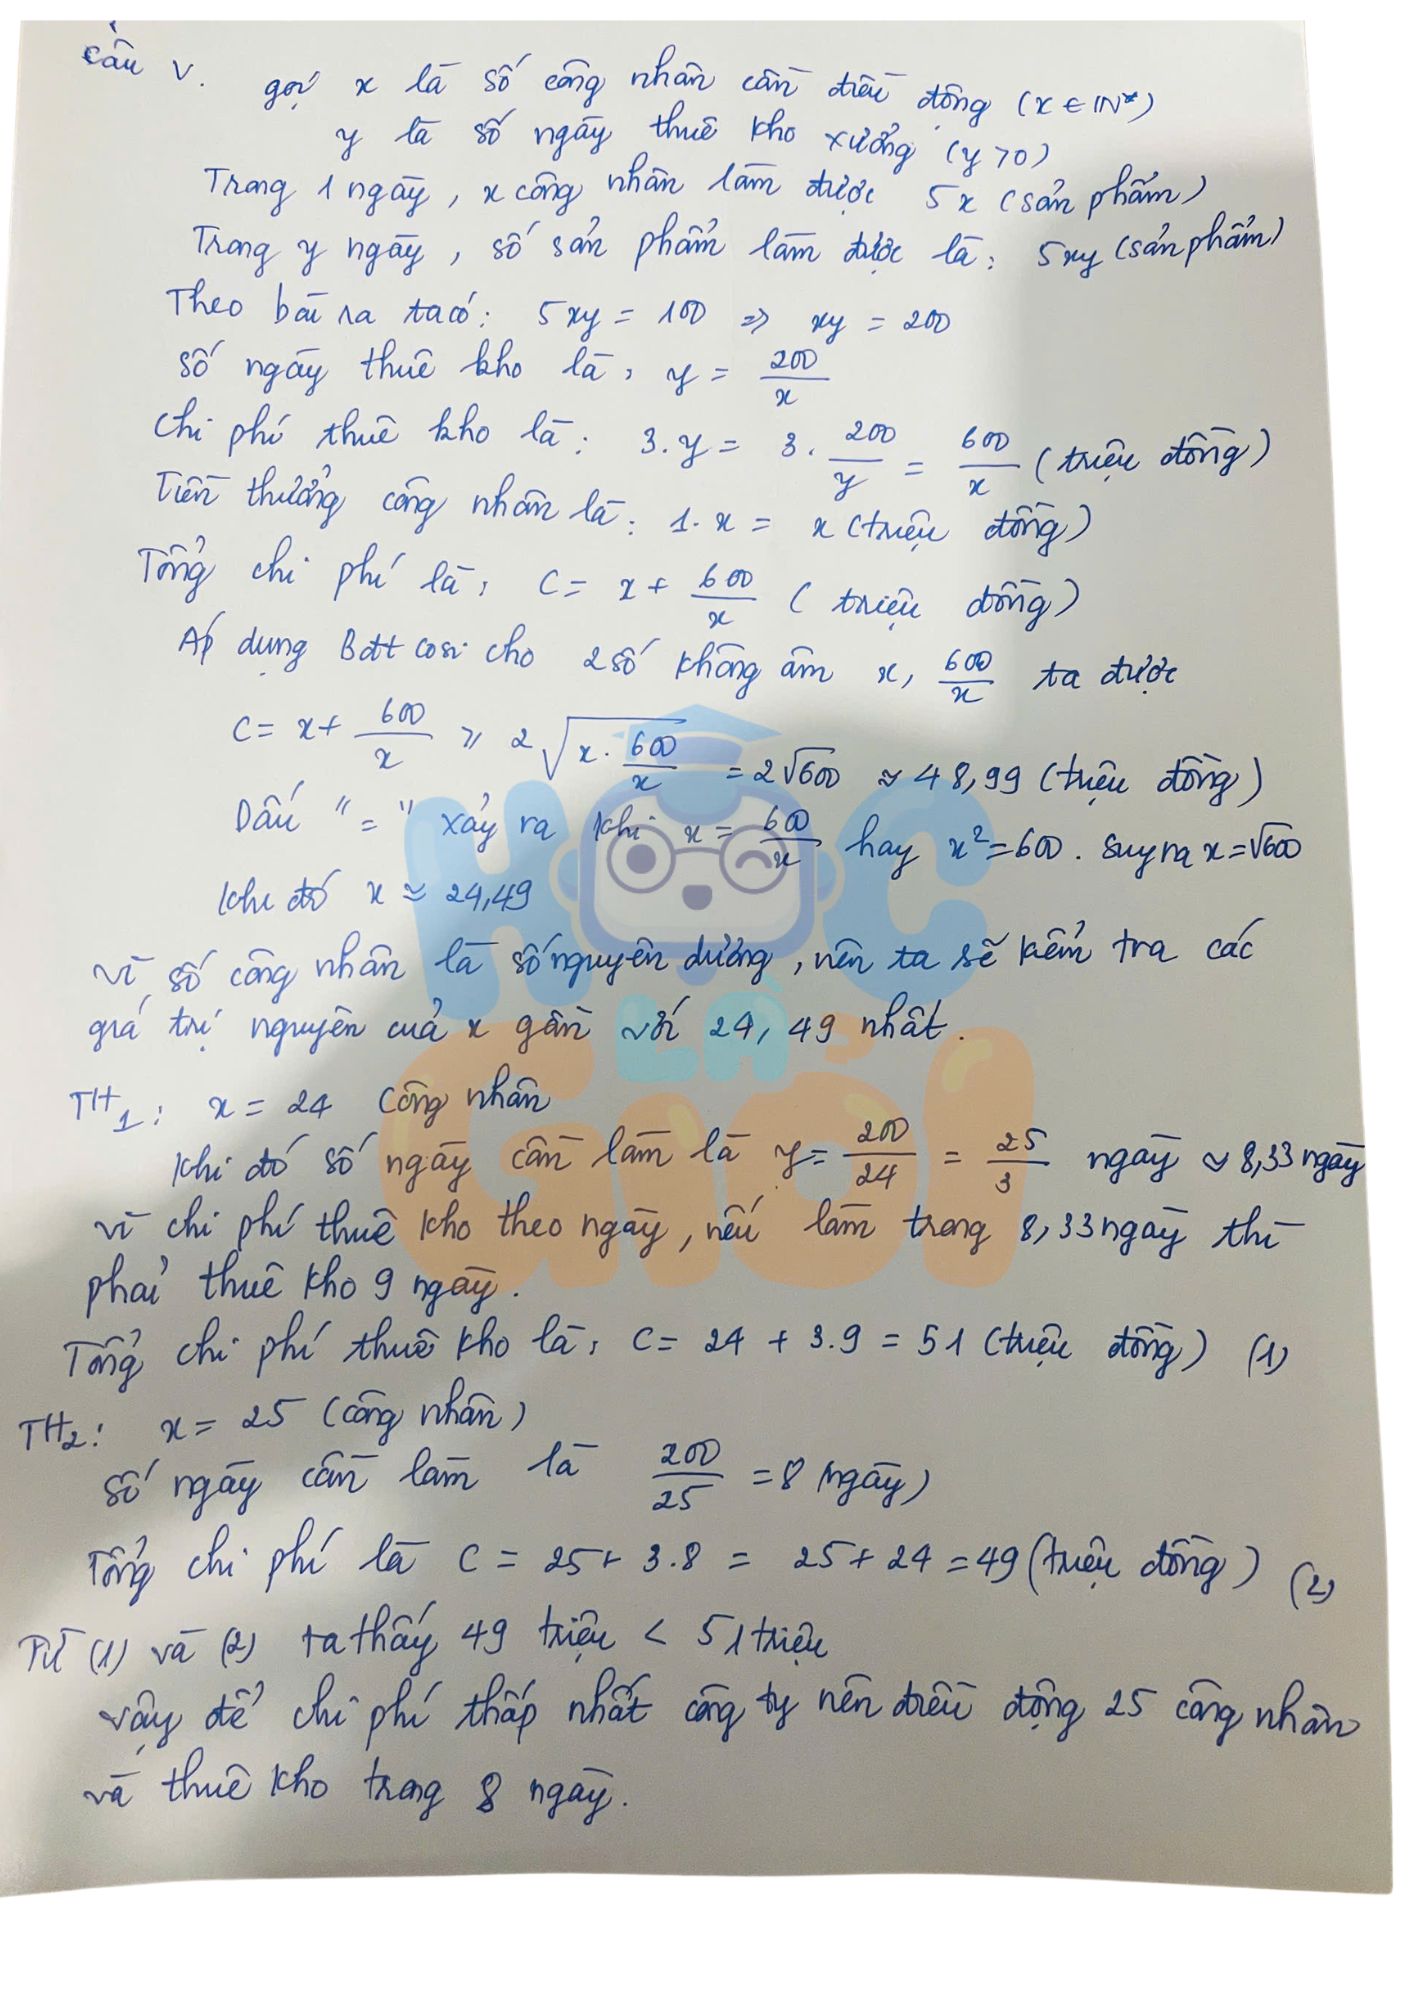 Câu V.
gọi x là số công nhân cần điều động (x ∈ IN*)
y là số ngày thuê kho xưởng (y > 0)
Trong 1 ngày, x công nhân làm được 5x (sản phẩm)
Trong y ngày, số sản phẩm làm được là: 5xy (sản phẩm)
Theo bài ra ta có: 5xy = 100 => xy = 200
Số ngày thuê kho là: y = 200/x
Chi phí thuê kho là: 3.y = 3. 200/y = 600/x (triệu đồng)
Tiền thưởng công nhân là: 1. x = x (triệu đồng)
Tổng chi phí là: C = x + 600/x (triệu đồng)
Áp dụng Bđt cosi cho 2 số không âm x, 600/x ta được
C = x + 600/x ≥ 2√(x. 600/x) = 2√600 ≈ 48,99 (triệu đồng)
Dấu "=" xảy ra khi x = 600/x hay x² = 600. Suy ra x = √600
Khi đó x ≈ 24,49
Vì số công nhân là số nguyên dương, nên ta sẽ kiểm tra các
giá trị nguyên của x gần với 24,49 nhất.
TH1: x = 24 công nhân
Khi đó số ngày cần làm là y = 200/24 = 25/3 ngày ≈ 8,33 ngày
Vì chi phí thuê kho theo ngày, nếu làm trong 8,33 ngày thì
phải thuê kho 9 ngày.
Tổng chi phí thuê kho là: C = 24 + 3.9 = 51 (triệu đồng) (1)
TH2: x = 25 (công nhân)
Số ngày cần làm là 200/25 = 8 (ngày)
Tổng chi phí là C = 25 + 3.8 = 25 + 24 = 49 (triệu đồng) (2)
Từ (1) và (2) ta thấy 49 triệu < 51 triệu
Vậy để chi phí thấp nhất công ty nên điều động 25 công nhân
và thuê kho trong 8 ngày.
HỌC
LÀ
GIỎI